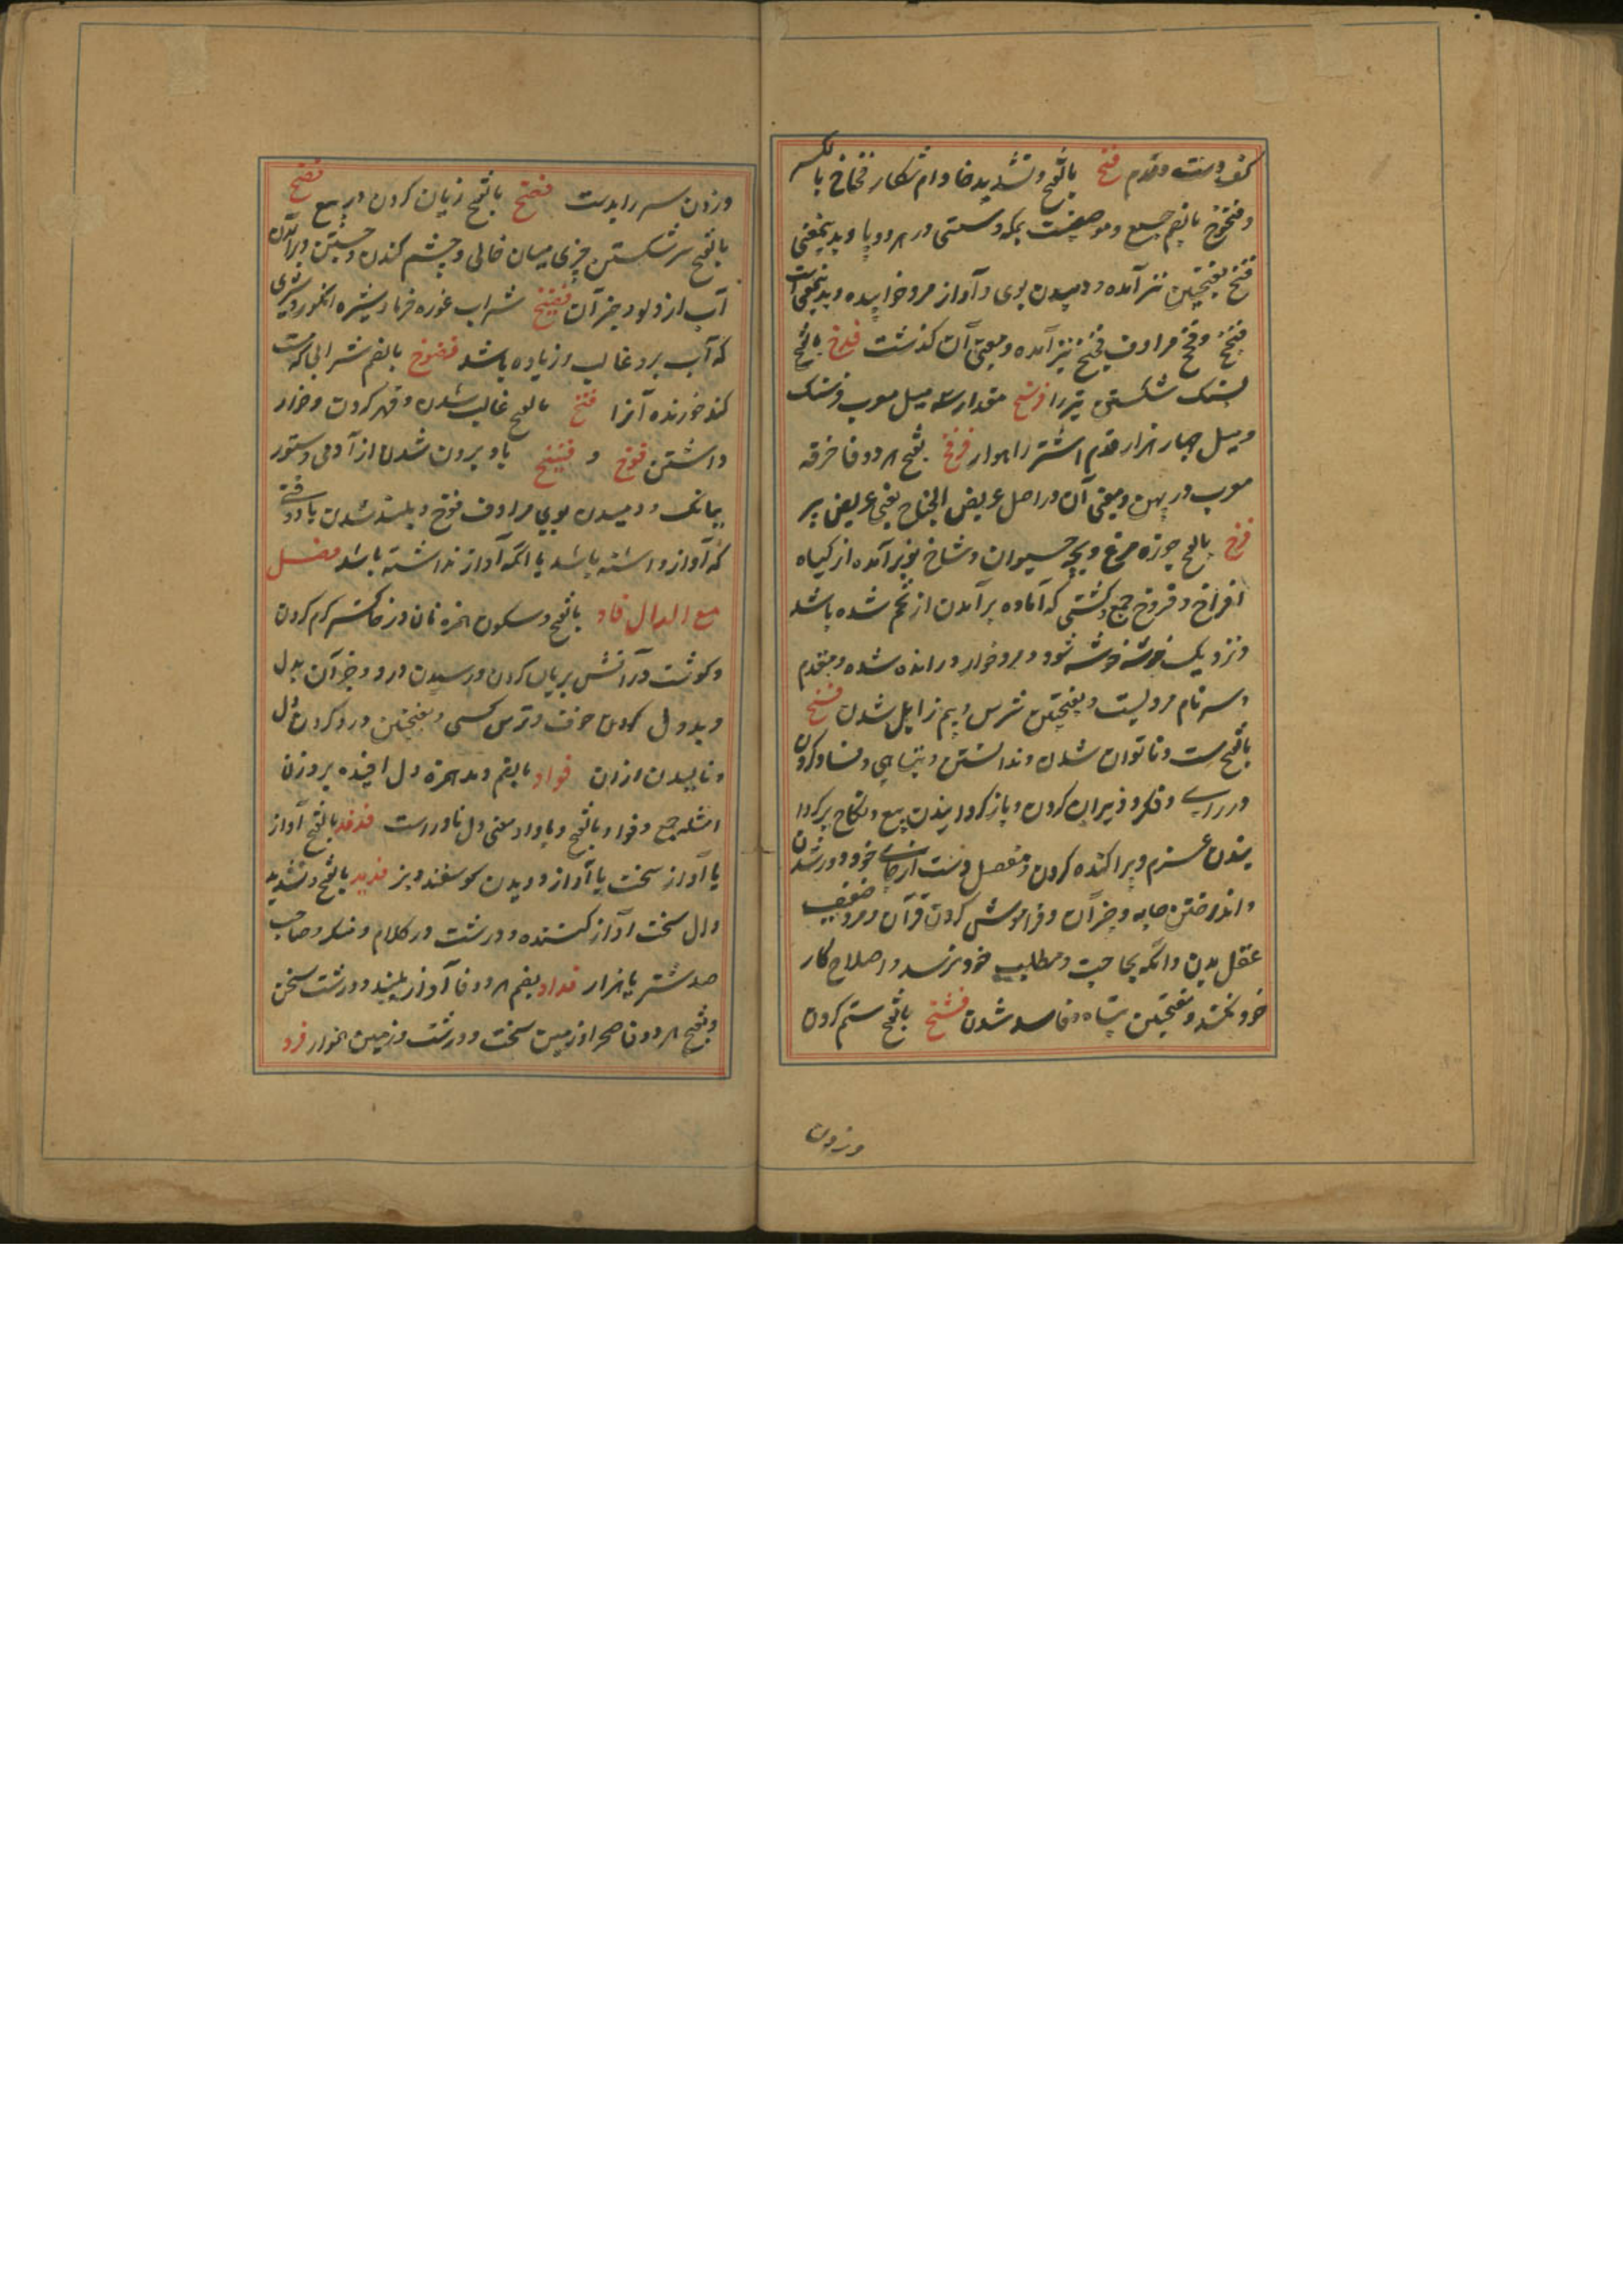 کف دست و قدم فتخ بالفتح و تشدید خا دام شکار فخاخ بالکسر
و فخوخ بالضم جمع و موضعیست بمکه و سستی در هر دو پا و بدینمعنی
فتخ بفتحتین نیز آمده و دمیدن بوی و آواز مرد خوابیده و بدینمعنی است
فخیخ و فخ مرادف فخیخ نیز آمده و معنی آن گذشت فدخ بالفتح
بسنگ شکستن چیز را فرسخ مقدار سه میل معرب فرسنگ
و میل چهار هزار قدم اشتر راهوار فرفخ بفتح هر دو فا خرفه
معرب در پهن و معنی آن در اصل عریض الجناح یعنی عریض پر
فرخ بالفتح جوزه مرغ و بچه حیوان و شاخ نو برآمده از گیاه
افراخ و فروخ جمع و کشتی که آماده برآمدن از تخم شده باشد
و نزدیک خوشه خوشه شود و مرد خوار و رانده شده و مقدم
سر نام مردیست و بفتحتین ترس و بیم زایل شدن فسخ
بالفتح سست و ناتوان شدن و ندانستن و تباهی و فساد کردن
در رای و فکر و ویران کردن و باز گردانیدن بیع و نکاح پر کردا
نیدن عزم و پراکنده کردن و مفصل دست از جای خود دور شدن
و انداختن جامه و جز آن و فراموش کردن قرآن و مرد ضعیف
عقل بدن و آنکه بحاجت و مطلب خود نرسد و اصلاح کار
خود نکند و بفتحتین تباه و فاسد شدن فشخ بالفتح ستم کردن
و زدن
و زدن سر را بدست فصخ بالفتح زیان کردن در بیع فضخ
بالفتح سر شکستن چیزی میان خالی و چشم کندن و جستن و برآمدن
آب از دلو و جز آن فضیخ شراب غوره خرما و شیره انگور و شیری
که آب برو غالب و زیاده باشد فضوخ بالضم شرابی که مست
کند خورنده آنرا فنخ بالفتح غالب شدن و قهر کردن و خوار
داشتن فوخ و فیخ باد بیرون شدن از آدمی و ستور
ببانگ و دمیدن بوی مرادف فوح و بلند شدن باد وقتی
که آواز داشته باشد یا آنکه آواز نداشته باشد فصل
مع الدال فاد بالفتح و سکون همزه نان در خاکستر گرم کردن
و گوشت در آتش بریان کردن و رسیدن درد و جز آن بدل
و بددل کردن خوف و ترس کسی و بفتحتین درد کردن دل
و نالیدن از آن فواد بالضم و مد همزه دل افئده بر وزن
امثله جمع و فواد بالفتح و با واو بمعنی دل نادر است فدفد بالفتح آواز
یا آواز سخت یا آواز دویدن گوسفند و بز فدید بالفتح و تشدید
دال سخت آواز کننده و درشت در کلام و متکبر و صاحب
صد شتر یا هزار فداد بضم هر دو فا آواز بلند و درشت سخن
و بفتح هر دو فا صحرا و زمین سخت و درشت و زمین هموار فرد